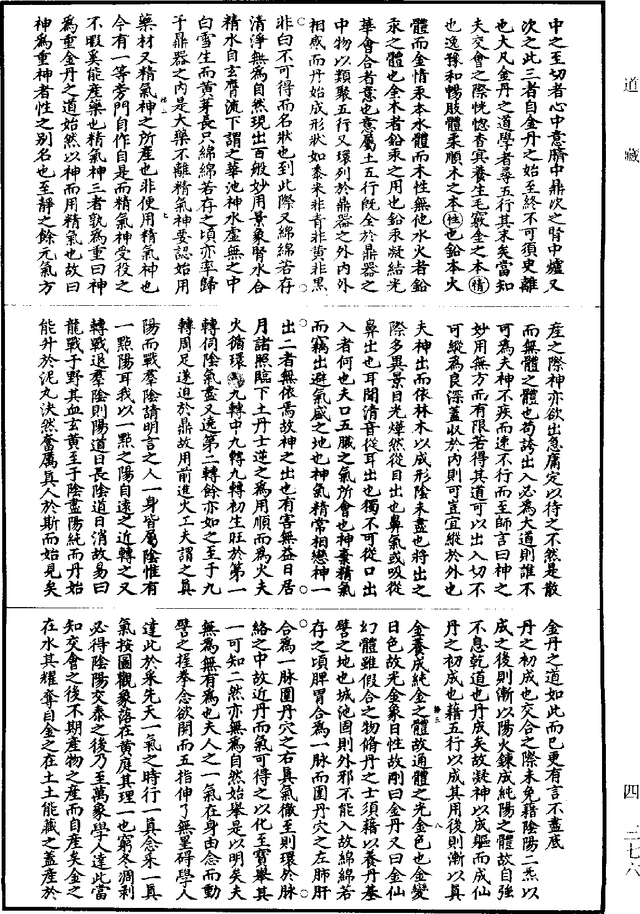 道藏
中之至切者心中意臍中鼎次之腎中爐又
次之此三者自金丹之始至終不可須臾離
也大凡金丹之道學者尋五行其末矣當知
夫交會之際恍惚杳冥養生毛竅金之本情
也逸豫和暢肢體柔順木之本性也鉛本火
體而金情汞本水體而木性無他水火者鉛
汞之體也金木者鉛汞之用也鉛汞凝結光
華會合者意也意屬土五行既全於鼎器之
中物以類聚五行又環列於鼎器之外內外
相感而丹始成形狀如黍米非青非黃非黑
非白不可得而名狀也到此際又綿綿若存
清淨無為自然現出百般妙用景象腎水合
精水自玄膺流下謂之華池神水虛無之中
白雪生而黃芽長只綿綿若存之頃亦率歸
于鼎器之內是大藥不離精氣神要認始用
藥材又精氣神之所產也非使用精氣神也
今有一等旁門自作自是而精氣神受役之
不暇奚能產藥也精氣神三者孰為重曰神
為重金丹之道始然以神而用精氣也故曰
神為重神者性之別名也至靜之餘元氣方
產之際神亦欲出急庸定以待之不然是散
而無體之體也苟誇出入必為大道則誰不
可為夫神不疾而速不行而至師言曰神之
妙用無方而有限若得其道可以出入切不
可縱為良深蓋收於內則可豈宜縱於外也
夫神出而依林木以成形陰未盡也將出之
際多異景目光爗然從目出也鼻氣或吸從
鼻出也耳聞清音從耳出也獨不可從口出
入者何也夫口五臟之氣所會也神棄精氣
而竊出避氣感之地也神氣精常相戀神一
出二者無依焉故神之出也有害無益日居
月諸照臨下土丹士逆之為用順而為火夫
火循環九轉中九轉九轉初生旺於第一
轉伺陰氣盡又遶第二轉餘亦如之至于九
轉周足遂迫於鼎故用前進火工夫謂之真
陽而戰羣陰請明言之人一身皆屬陰惟有
一點陽耳我以一點之陽自遠之近轉之又
轉戰退羣陰則陽道日長陰道日消故易曰
龍戰于野其血玄黃至于陰盡陽純而丹始
能升於泥丸決然奮厲真人於斯而始見矣
金丹之道如此而已更有言不盡底
丹之初成也交合之際未免藉陰陽二炁以
成之後則漸以陽火鍊成純陽之體故自強
不息乾道也丹成矣故凝神以成軀而成仙
丹之初成也藉五行以成其用後則漸以真
金養成純金之體故通體之光金色也金變
日色故光金象日性故剛曰金丹又曰金仙
幻體雖假合之物脩丹之士須藉以養丹基
譬之地也城池固則外邪不能入故綿綿若
存之頃脾胃合為一脉而圍丹穴之左肺肝
合為一脉圍丹穴之右真氣徹至則環於脉
絡之中故近丹而氣可得之以化至寶舉其
一可知二然亦無為自然始舉是以明矣夫
無為無有為也夫人之一氣在身由念而動
譬之捏拳念欲開而五指伸了無罣碍學人
達此於采先天一氣之時行一真念采一真
氣按圖觀象落在黃庭其理一也窮冬凋剥
必得陰陽交泰之後乃至萬象學人達此當
知交會之後不期產物之產而自產矣金之
在水其耀奪自金之在土土能藏之蓋產於
四 三七六